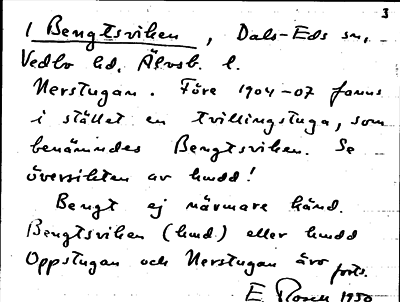 3
1 Bengtsviken, Dals-Eds sn,
Vedbo hd, Älvsb. l.
Nerstugan. Före 1904-07 fanns
i stället en tvillingstuga, som
benämndes Bengtsviken. Se
översikten av hmdd!
Bengt ej närmare känd.
Bengtsviken (hmd.) eller hmdd
Oppstugan och Nerstugan äro forts.
E. Rosell 1950